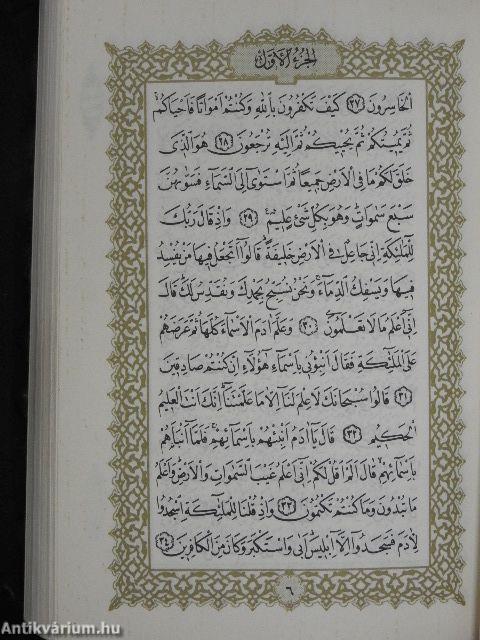 الجزء الأول
الْخَاسِرُونَ ﴿٢٧﴾ كَيْفَ تَكْفُرُونَ بِاللّٰهِ وَكُنْتُمْ اَمْوَاتًا فَاَحْيَاكُمْ
ثُمَّ يُمِيتُكُمْ ثُمَّ يُحْيِيكُمْ ثُمَّ اِلَيْهِ تُرْجَعُونَ ﴿٢٨﴾ هُوَ الَّذِى
خَلَقَ لَكُمْ مَا فِى الْاَرْضِ جَمِيعًا ثُمَّ اسْتَوٰى اِلَى السَّمَاءِ فَسَوّٰيهُنَّ
سَبْعَ سَمٰوَاتٍ وَهُوَ بِكُلِّ شَىْءٍ عَلِيمٌ ﴿٢٩﴾ وَاِذْ قَالَ رَبُّكَ
لِلْمَلٰئِكَةِ اِنِّى جَاعِلٌ فِى الْاَرْضِ خَلِيفَةً قَالُوا اَتَجْعَلُ فِيهَا مَنْ يُفْسِدُ
فِيهَا وَيَسْفِكُ الدِّمَاءَ وَنَحْنُ نُسَبِّحُ بِحَمْدِكَ وَنُقَدِّسُ لَكَ قَالَ
اِنِّى اَعْلَمُ مَا لَا تَعْلَمُونَ ﴿٣٠﴾ وَعَلَّمَ اٰدَمَ الْاَسْمَاءَ كُلَّهَا ثُمَّ عَرَضَهُمْ
عَلَى الْمَلٰئِكَةِ فَقَالَ اَنْبِئُونِى بِاَسْمَاءِ هٰؤُلَاءِ اِنْ كُنْتُمْ صَادِقِينَ
﴿٣١﴾ قَالُوا سُبْحَانَكَ لَا عِلْمَ لَنَا اِلَّا مَا عَلَّمْتَنَا اِنَّكَ اَنْتَ الْعَلِيمُ
الْحَكِيمُ ﴿٣٢﴾ قَالَ يَا اٰدَمُ اَنْبِئْهُمْ بِاَسْمَائِهِمْ فَلَمَّا اَنْبَاَهُمْ
بِاَسْمَائِهِمْ قَالَ اَلَمْ اَقُلْ لَكُمْ اِنِّى اَعْلَمُ غَيْبَ السَّمٰوَاتِ وَالْاَرْضِ وَاَعْلَمُ
مَا تُبْدُونَ وَمَا كُنْتُمْ تَكْتُمُونَ ﴿٣٣﴾ وَاِذْ قُلْنَا لِلْمَلٰئِكَةِ اسْجُدُوا
لِاٰدَمَ فَسَجَدُوا اِلَّا اِبْلِيسَ اَبٰى وَاسْتَكْبَرَ وَكَانَ مِنَ الْكَافِرِينَ ﴿٣٤﴾
٦
Antikvárium.hu